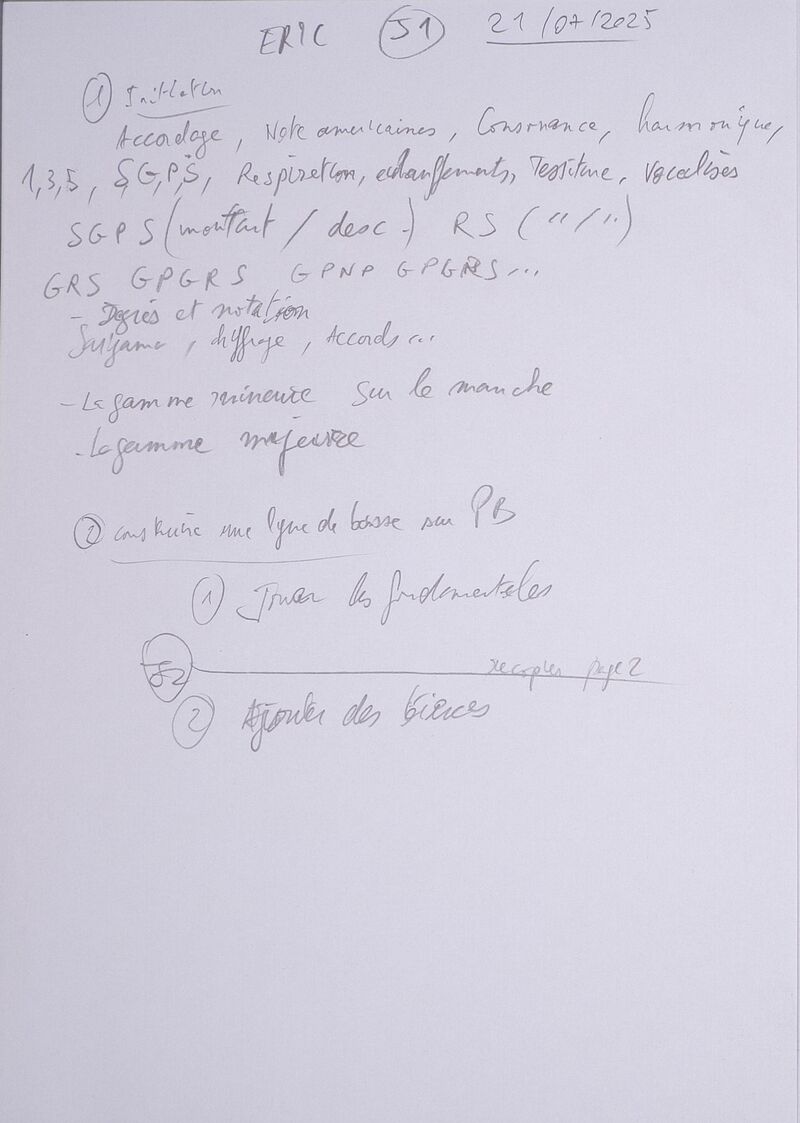 ERIC S1 21/07/2025
① Initiation
Accordage, Note americaines, Consonnance, harmonique,
1,3,5, S,G,P,Ṡ, Respiration, echauffements, Tessiture, Vocalises
SGPS (montant / desc.) RS ("/")
GRS GPGRS GPNP GPGRS...
- Degrés et notation
Sargama, chiffrage, Accords...
- La gamme mineure sur le manche
- La gamme majeure
② construire une ligne de basse sur PB
① Jouer les fondamentales
S2 recopier page 2
② Ajouter des tierces